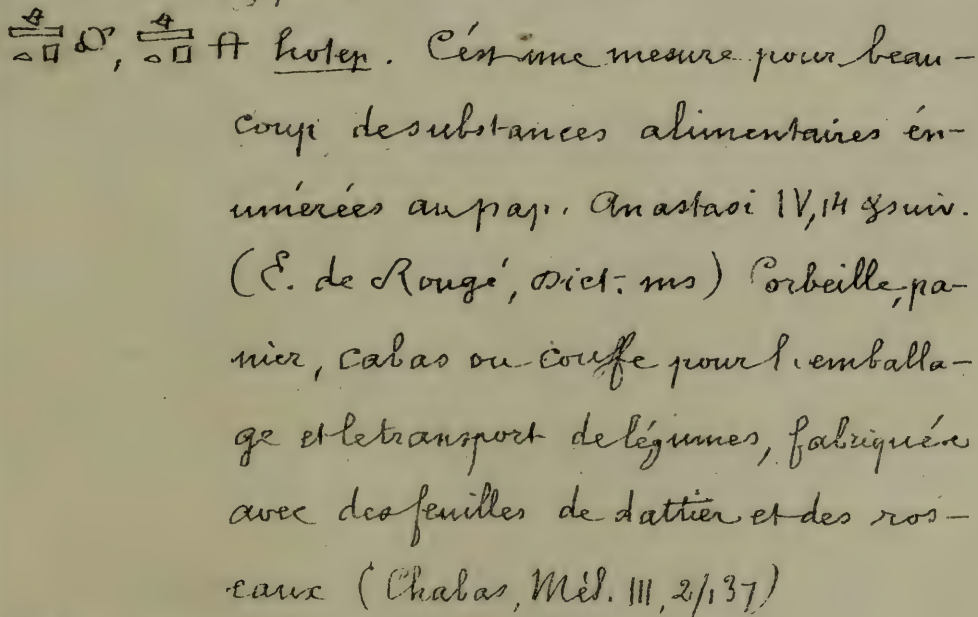 𓊵𓏏𓊪, 𓊵𓏏𓊪 hotep. C'est une mesure pour beau-
coup de substances alimentaires én-
umérées au pap. Anastasi IV, 14 & suiv.
(E. de Rougé, Dict. ms) Corbeille, pa-
nier, cabas ou couffe pour l'emballa-
ge et le transport de légumes, fabriquée
avec des feuilles de dattier et des ros-
eaux (Chabas, Mél. III, 2/, 37)